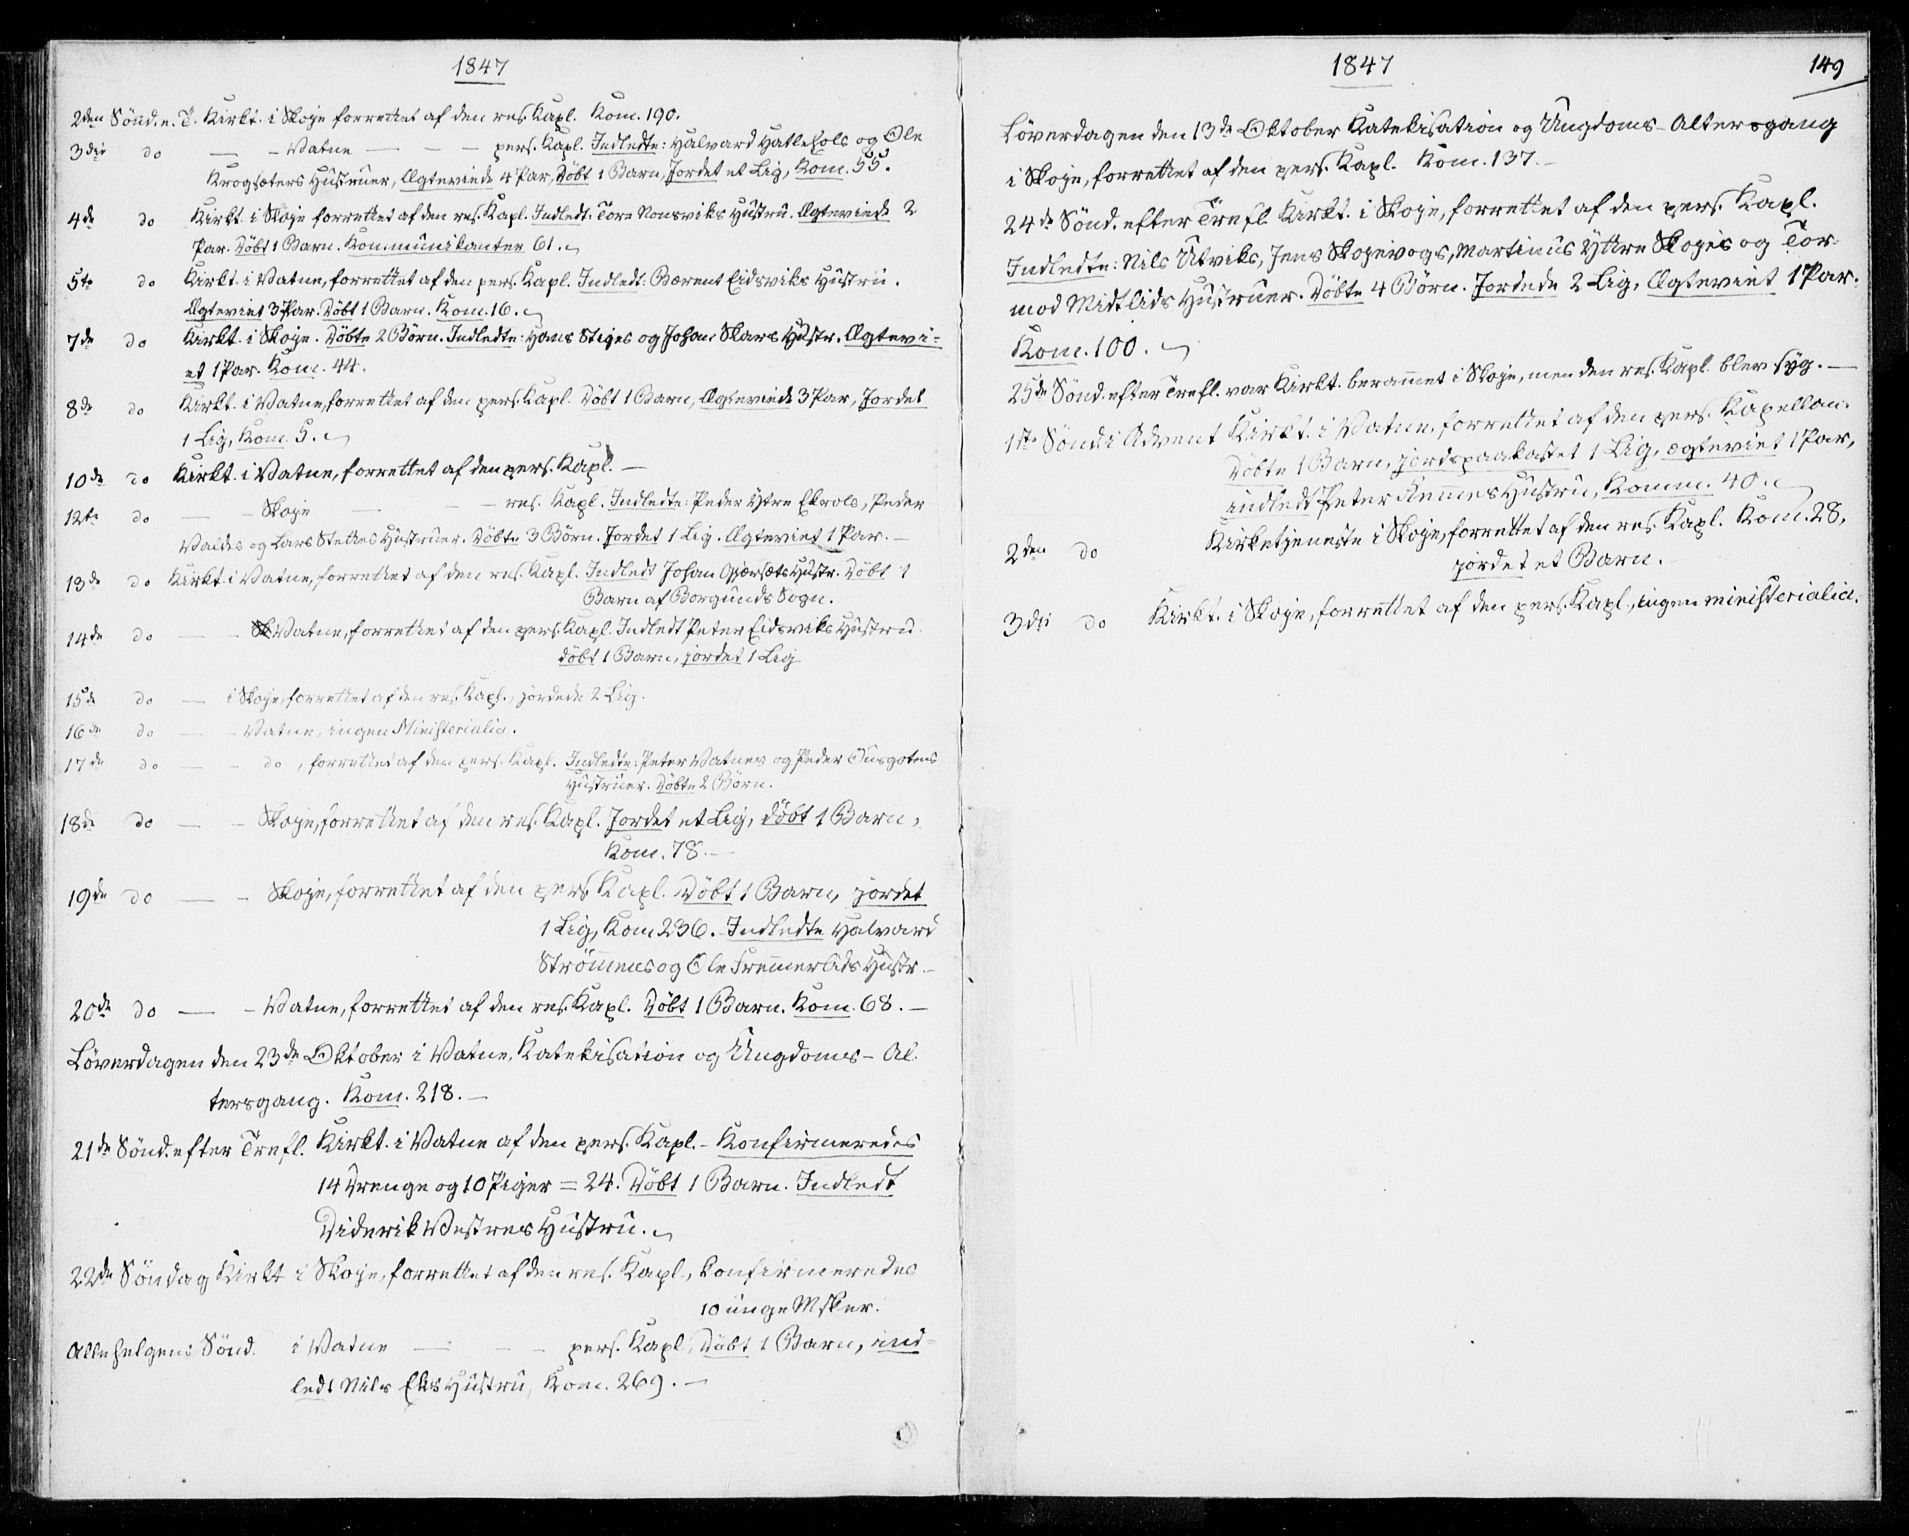 1847
2den Sönd. e. T. Kirkt. i Skoje forrettet af den res. Kapl. Kom. 190.
3die do — - Vatne — - — pers. Kapl. Indledte: Halvard Hatlehols og Ole
Krogsæters Hustruer, Ægteviede 4 Par, Döbt 1 Barn, Jordet et Lig, Kom. 55.
4de do Kirkt. i Skoje forrettet af den res. Kapl. Indledt: Tore Nonsviks Hustru. Ægteviede 2
Par. Döbt 1 Barn. Kommunikanter 61.
5te do Kirkt. i Vatne, forrettet af den pers. Kapl. Indledt: Berent Eidsviks Hustru.
Ægteviet 3 Par. Döbt 1 Barn. Kom. 16.
7de do Kirkt. i Skoje. Döbte 2 Börn. Indledte: Hans Stiges og Johan Skars Hustr. Ægtevi-
et 1 Par. Kom. 44.
8de do Kirkt. i Vatne, forrettet af den pers. Kapl. Döbt 1 Barn, Ægteviede 3 Par, Jordet
1 Lig, Kom. 5.
10de do Kirkt. i Vatne, forrettet af den pers. Kapl. —
12te do — - Skoje — res. Kapl. Indledte: Peder Ytre Ekrols, Peder
Valdes og Lars Stettes Hustruer. Döbte 3 Börn. Jordet 1 Lig. Ægteviet 1 Par. —
13de do Kirkt. i Vatne, forrettet af den res. Kapl. Indledt Johan Gjærsets Hustr. Döbt 1
Barn af Borgunds Sogn.
14de do — - Vatne, forrettet af den pers. Kapl. Indledt Peter Eidsviks Hustru
döbt 1 Barn, jordet 1 Lig
15de do — i Skoje, forrettet af den res. Kapl., jordede 2 Lig.
16de do — - Vatne, ingen Ministerialia.
17de do — - do, forrettet af den pers. Kapl. Indledte: Peter Vatnes og Peder
Hustruer. Döbte 2 Börn.
18de do — - Skoje, forrettet af den res. Kapl. Jordet et Lig, döbt 1 Barn,
Kom. 78. —
19de do — - Skoje, forrettet af den pers. Kapl. Döbt 1 Barn, jordet
1 Lig, Kom 236. Indledte Halvard
Strömmes og Ole Fremmerlids Hustr. —
20de do — - Vatne, forrettet af den res. Kapl. Döbt 1 Barn. Kom. 68. —
Löverdagen den 23de Oktober i Vatne, Katekisation og Ungdoms-Al-
tersgang. Kom. 218. —
21de Sönd. efter Trefl. Kirkt. i Vatne af den pers. Kapl. - Konfirmeredes
14 Drenge og 10 Piger = 24. Döbt 1 Barn. Indledt
Diderik Vestres Hustru.
22de Söndag Kirkt i Skoje, forrettet af den res. Kapl., konfirmeredes
10 unge Msker.
Allehelgens Sönd. i Vatne — - - pers. Kapl, Döbt 1 Barn, ind-
ledt Nils Eks Hustru, Kom. 269. —
1847
149
Löverdagen den 13de Oktober Katekisation og Ungdoms-Altersgang
i Skoje, forrettet af den pers. Kapl. Kom. 137. —
24de Sönd. efter Trefl. Kirkt. i Skoje, forrettet af den pers. Kapl.
Indledte: Nils Utviks, Jens Skojevogs, Martinus Yttre Skojes og Tor-
mod Midtlids Hustruer. Döbte 4 Börn. Jordede 2 Lig, Ægteviet 1 Par.
Kom. 100.
25de Sönd. efter Trefl. var Kirkt. berammet i Skoje, men den res. Kapl. blev syg. —
1ste Sönd. i Advent Kirkt. i Vatne, forrettet af den pers. Kapellan.
Döbte 1 Barn, jordspaakastet 1 Lig, ægteviet 1 Par,
indledt Peter Hustru, Komm. 40.
2den do Kirketjeneste i Skoje, forrettet af den res. Kapl. Kom. 28,
jordet et Barn.
3die do Kirkt. i Skoje, forrettet af den pers. Kapl., ingen ministerialia.